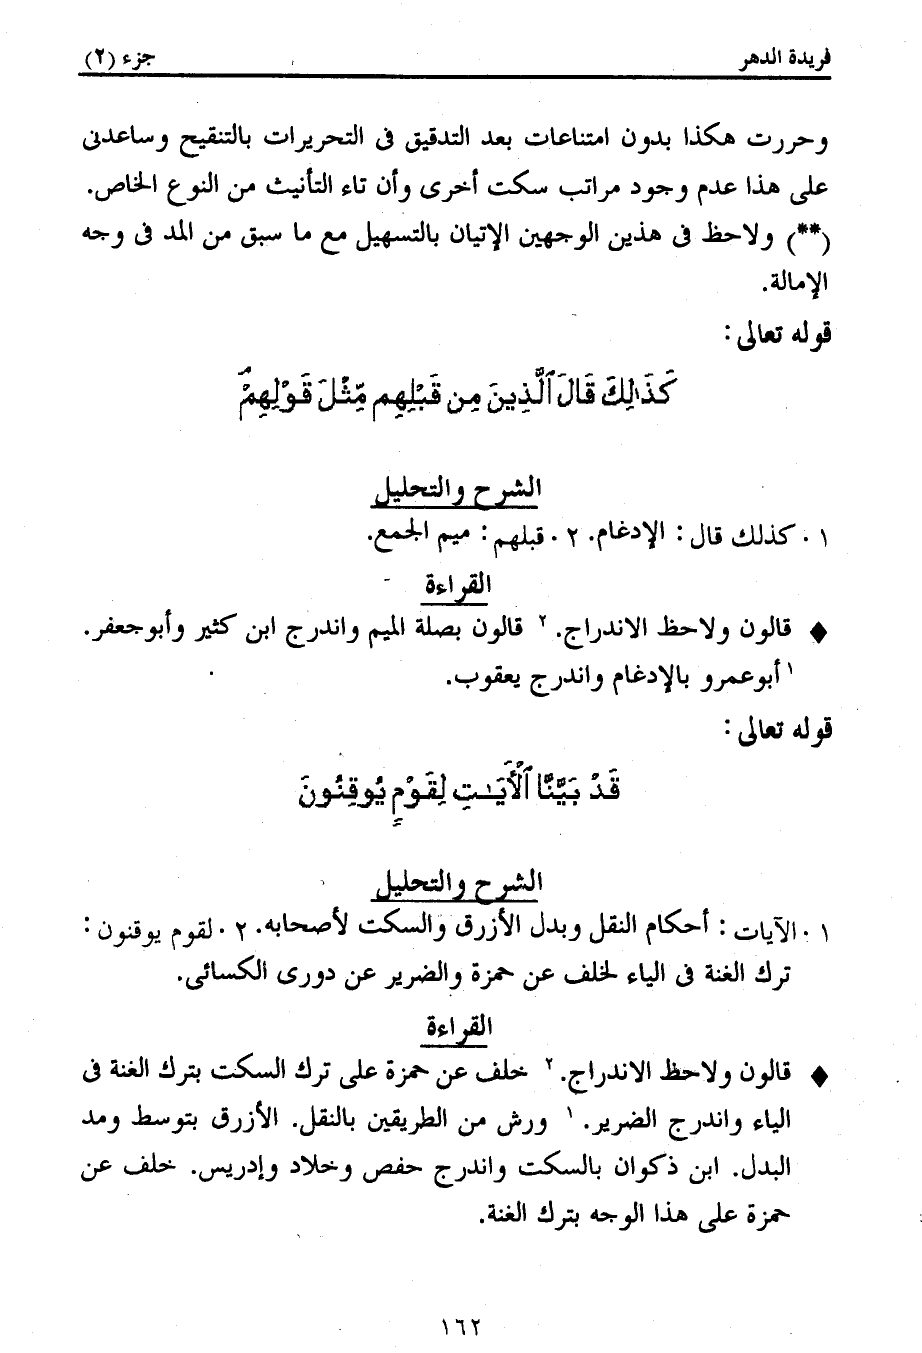 فريدة الدهر
جزء (٢)
وحررت هكذا بدون امتناعات بعد التدقيق فى التحريرات بالتنقيح وساعدنى
على هذا عدم وجود مراتب سكت أخرى وأن تاء التأنيث من النوع الخاص.
(**) ولاحظ فى هذين الوجهين الإتيان بالتسهيل مع ما سبق من المد فى وجه
الإمالة.
قوله تعالى :
كَذَٰلِكَ قَالَ ٱلَّذِينَ مِن قَبْلِهِم مِّثْلَ قَوْلِهِمْۘ
الشرح والتحليل
١ . كذلك قال : الإدغام. ٢ . قبلهم : ميم الجمع.
القراءة
♦ قالون ولاحظ الاندراج. ٢ قالون بصلة الميم واندرج ابن كثير وأبوجعفر.
١ أبوعمرو بالإدغام واندرج يعقوب.
قوله تعالى :
قَدْ بَيَّنَّا ٱلْأَيَـٰتِ لِقَوْمٍ يُوقِنُونَ
الشرح والتحليل
١ . الآيات : أحكام النقل وبدل الأزرق والسكت لأصحابه. ٢ . لقوم يوقنون :
ترك الغنة فى الياء لخلف عن حمزة والضرير عن دورى الكسائى.
القراءة
♦ قالون ولاحظ الاندراج. ٢ خلف عن حمزة على ترك السكت بترك الغنة فى
الياء واندرج الضرير. ١ ورش من الطريقين بالنقل. الأزرق بتوسط ومد
البدل. ابن ذكوان بالسكت واندرج حفص وخلاد وإدريس. خلف عن
حمزة على هذا الوجه بترك الغنة.
١٦٢